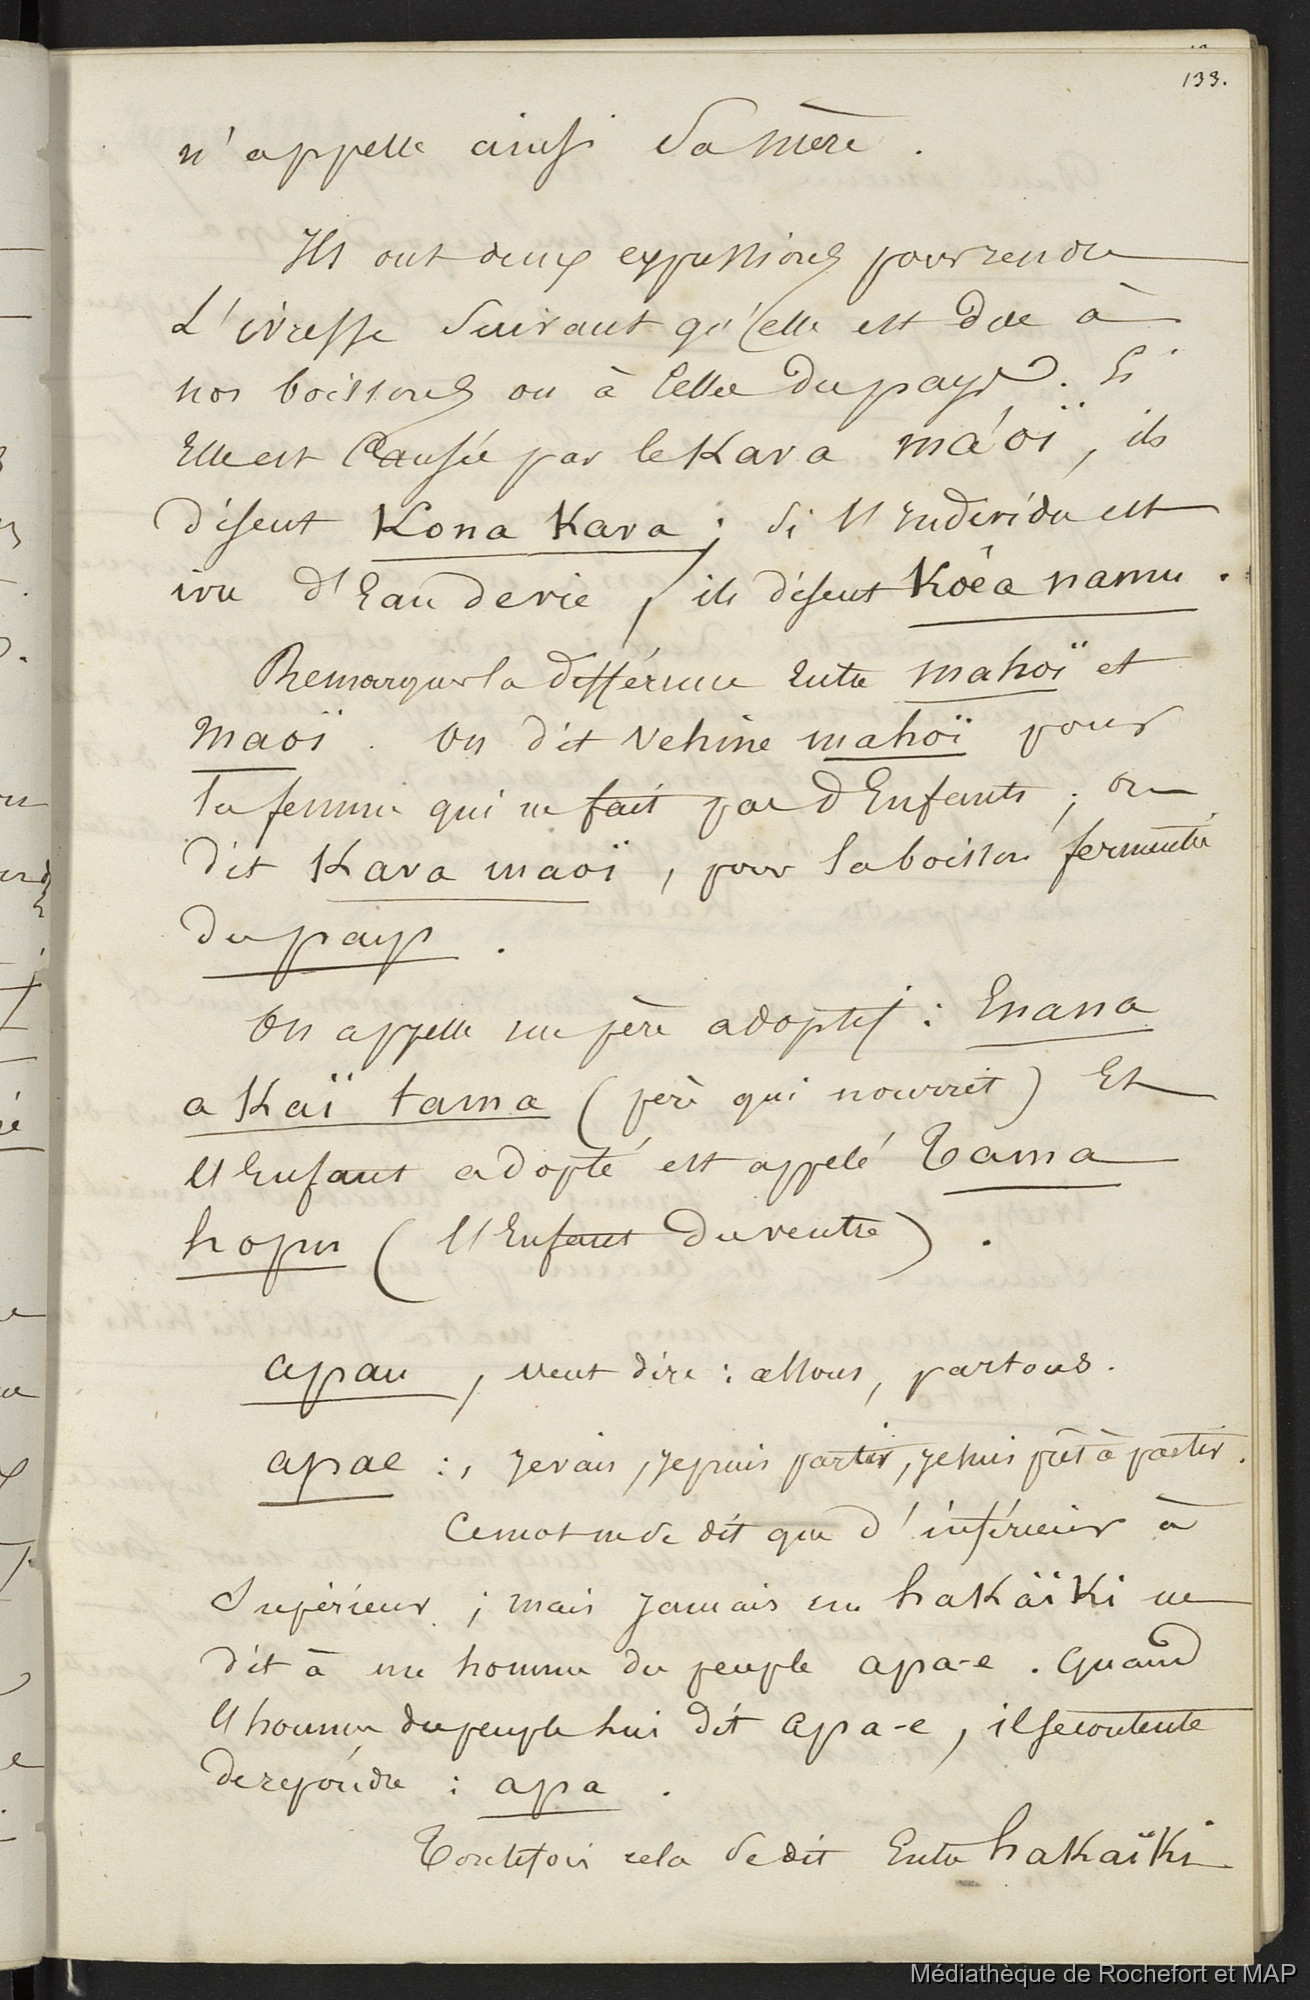 133.
n'appelle ainsi sa mère.
Ils ont deux expressions pour rendre
L'ivresse suivant qu'elle est due à
nos boissons ou à celles du pays. Si
Elle est Causée par le Kava máoï, ils
disent Kona Kava ; si l'Individu est
ivre d'Eau de vie, ils disent Koêa namu.
Remarquer la différence entre mahoï et
maoï. On dit vehine mahoï pour
la femme qui ne fait pas d'Enfants ; on
dit Kava maoï, pour la boisson fermentée
du pays.
On appelle un père adoptif : Enana
a Kaï tama (père qui nourrit) Et
l'Enfant adopté est appelé Tama
hopu (l'Enfant du ventre).
apau, veut dire : allons, partons.
apae :, Je vais, Je puis partir, je suis prêt à partir.
Ce mot ne se dit que d'inférieur à
Supérieur ; mais Jamais un haKäiKi ne
dit à un homme du peuple apa-e. Quand
l'homme du peuple lui dit apa-e, il se contente
de repóndre : apa.
Toutefois cela se dit Entre haKaïKi
Médiathèque de Rochefort et MAP